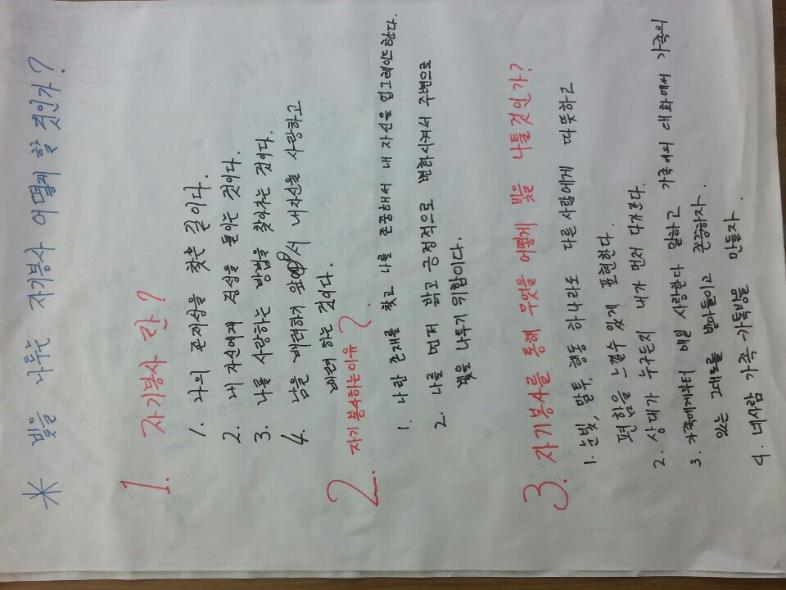 * 빛을 나누는 자기봉사 어떻게 할 것인가?
1. 자기봉사 란?
1. 나의 존재성을 찾는 길이다.
2. 내 자신에게 정성을 들이는 것이다.
3. 나를 사랑하는 방법을 찾아가는 것이다.
4. 남을 배려하기 앞에서 내자신을 사랑하고
배려 하는 것이다.
2. 자기 봉사하는이유?
1. 나란 존재를 찾고 나를 존중해서 내 자신을 업그레이드한다.
2. 나를 먼저 밝고 긍정적으로 변화시켜서 주변으로
빛을 나누기 위함이다.
3. 자기봉사를 통해 무엇을 어떻게 빛을 나눌것인가?
1. 눈빛, 말투, 행동 하나라도 다른사람에게 따뜻하고
편함을 느낄수 있게 표현한다.
2. 상대가 누구든지 내가 먼저 다가간다.
3. 가족에게부터 매일 사랑한다 말하고 가족의 대화에서 가족의
있는 그대로를 받아들이고 인정하자.
4. 네사람 가족 카톡방을 만들자.